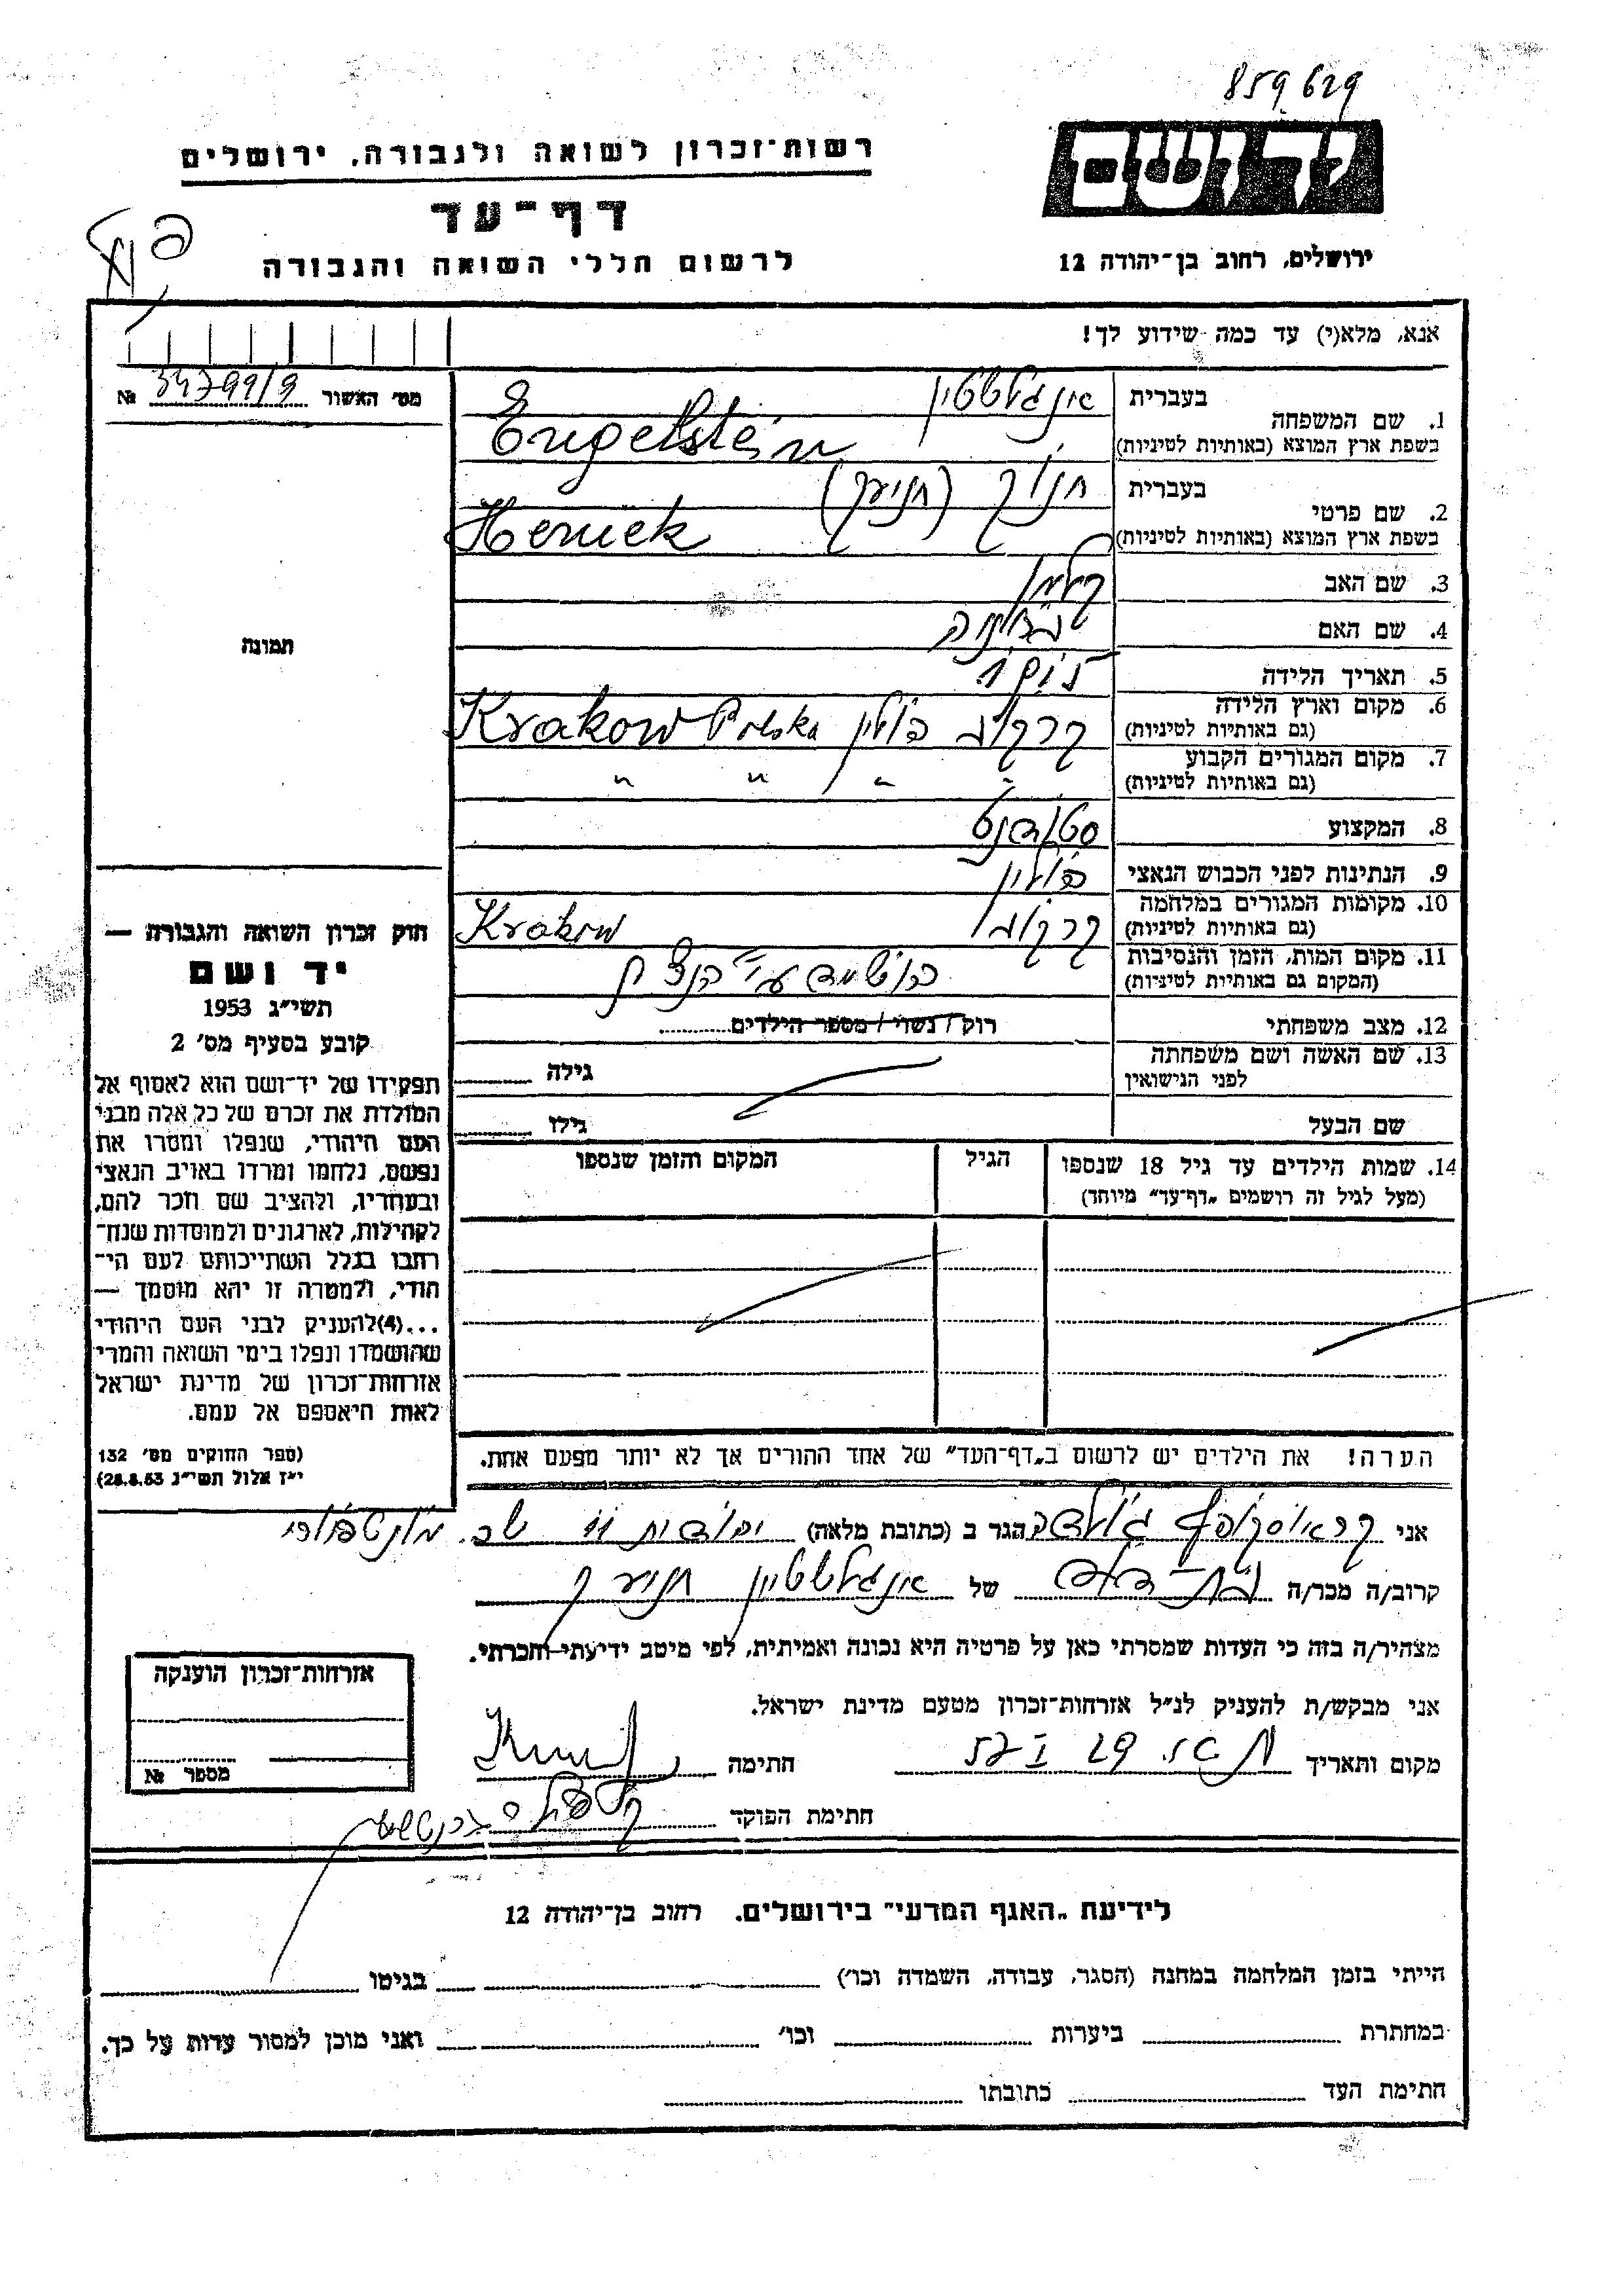 859629
יד ושם
רשות־זכרון לשואה ולגבורה, ירושלים
דף־עד
לרשום חללי השואה והגבורה
ירושלים, רחוב בן־יהודה 12
אנא, מלא(י) עד כמה שידוע לך!
מס׳ האשור № 34799/9
תמונה
1. שם המשפחה בעברית אינגלשטיין
בשפת ארץ המוצא (באותיות לטיניות) Engelstein
2. שם פרטי בעברית חנוך
בשפת ארץ המוצא (באותיות לטיניות) Heniek
3. שם האב קלמן
4. שם האם
5. תאריך הלידה
6. מקום וארץ הלידה (גם באותיות לטיניות) קרקוב פולין Krakow Polska
7. מקום המגורים הקבוע (גם באותיות לטיניות) " " " "
8. המקצוע סטודנט
9. הנתינות לפני הכבוש הנאצי פולין
10. מקומות המגורים במלחמה (גם באותיות לטיניות) קרקוב Krakow
11. מקום המות, הזמן והנסיבות (המקום גם באותיות לטיניות) הושמד ע"י
12. מצב משפחתי רוק / נשוי / מספר הילדים
13. שם האשה ושם משפחתה לפני הנישואין גילה
שם הבעל גילו
14. שמות הילדים עד גיל 18 שנספו הגיל המקום והזמן שנספו
(מעל לגיל זה רושמים „דף־עד״ מיוחד)
חוק זכרון השואה והגבורה —
יד ושם
תשי״ג 1953
קובע בסעיף מס׳ 2
תפקידו של יד־ושם הוא לאסוף אל
המולדת את זכרם של כל אלה מבני
העם היהודי, שנפלו ומסרו את
נפשם, נלחמו ומרדו באויב הנאצי
ובעוזריו, ולהציב שם וזכר להם,
לקהילות, לארגונים ולמוסדות שנח־
רחבו בגלל השתייכותם לעם הי־
הודי, ולמטרה זו יהא מוסמך —
...(4)להעניק לבני העם היהודי
שהושמדו ונפלו בימי השואה והמרי
אזרחות־זכרון של מדינת ישראל
לאות היאספם אל עמם.
(ספר החוקים מס׳ 132
י״ז אלול תשי״ג 28.8.53)
הערה! את הילדים יש לרשום ב„דף־העד״ של אחד ההורים אך לא יותר מפעם אחת.
אני הגר ב (כתובת מלאה)
קרוב/ה מכר/ה של אינגלשטיין
מצהיר/ה בזה כי העדות שמסרתי כאן על פרטיה היא נכונה ואמיתית, לפי מיטב ידיעתי והכרתי.
אני מבקש/ת להעניק לנ״ל אזרחות־זכרון מטעם מדינת ישראל.
מקום ותאריך חתימה
חתימת הפוקד
אזרחות־זכרון הוענקה
מספר №
לידיעת „האגף המדעי״ בירושלים. רחוב בן־יהודה 12
הייתי בזמן המלחמה במחנה (הסגר, עבודה, השמדה וכו׳) בגיטו
במחתרת ביערות וכו׳ ואני מוכן למסור עדות על כך.
חתימת העד כתובתו